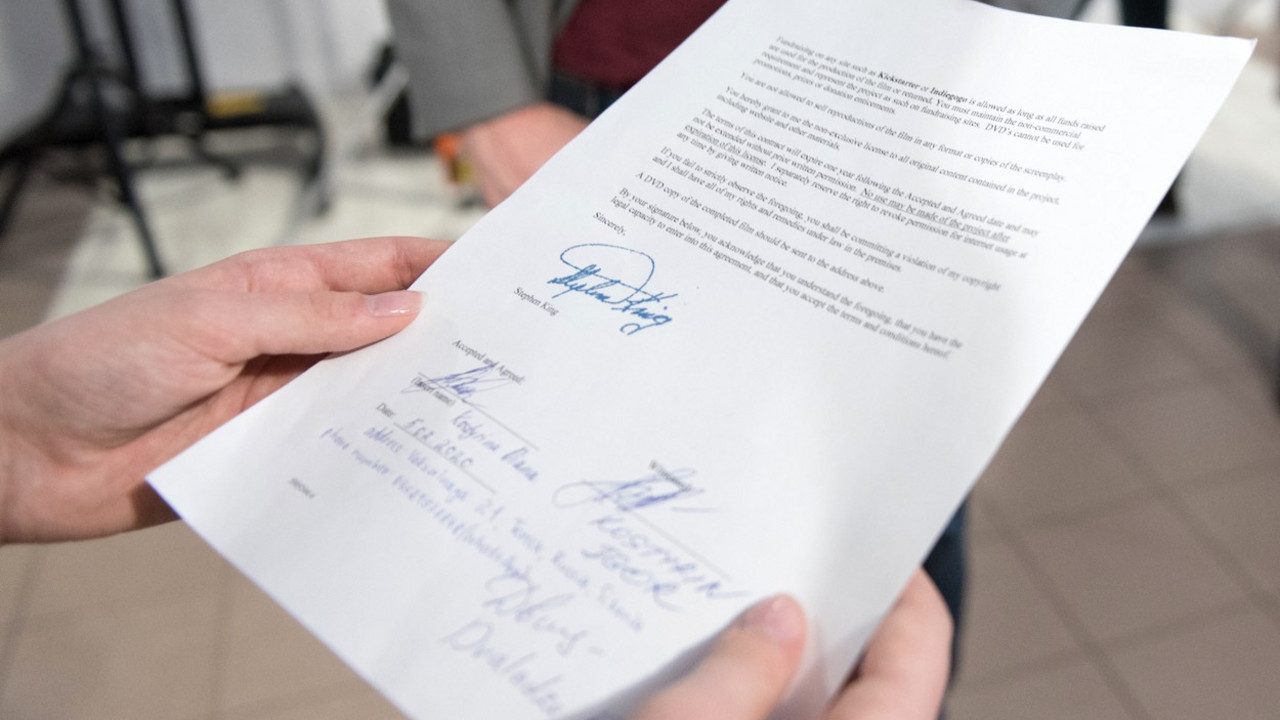 Fundraising on any site such as Kickstarter or Indiegogo is allowed as long as all funds raised
are used for the production of the film or returned. You must maintain the non-commercial
requirement and represent the project as such on fundraising sites. DVD's cannot be used for
promotions, prizes or donation enticements.
You are not allowed to sell reproductions of the film in any format or copies of the screenplay.
You hereby grant to me the non-exclusive license to all original content contained in the project,
including website and other materials.
The terms of this contract will expire one year following the Accepted and Agreed date and may
not be extended without prior written permission. No use may be made of the project after
expiration of this license. I separately reserve the right to revoke permission for internet usage at
any time by giving written notice.
If you fail to strictly observe the foregoing, you shall be committing a violation of my copyright
and I shall have all of my rights and remedies under law in the premises.
A DVD copy of the completed film should be sent to the address above.
By your signature below, you acknowledge that you understand the foregoing, that you have the
legal capacity to enter into this agreement, and that you accept the terms and conditions hereof.
Sincerely,
Stephen King
Stephen King
Accepted and Agreed:
(insert name)
Date:
address
phone number
KOSTYRIN
IGOR